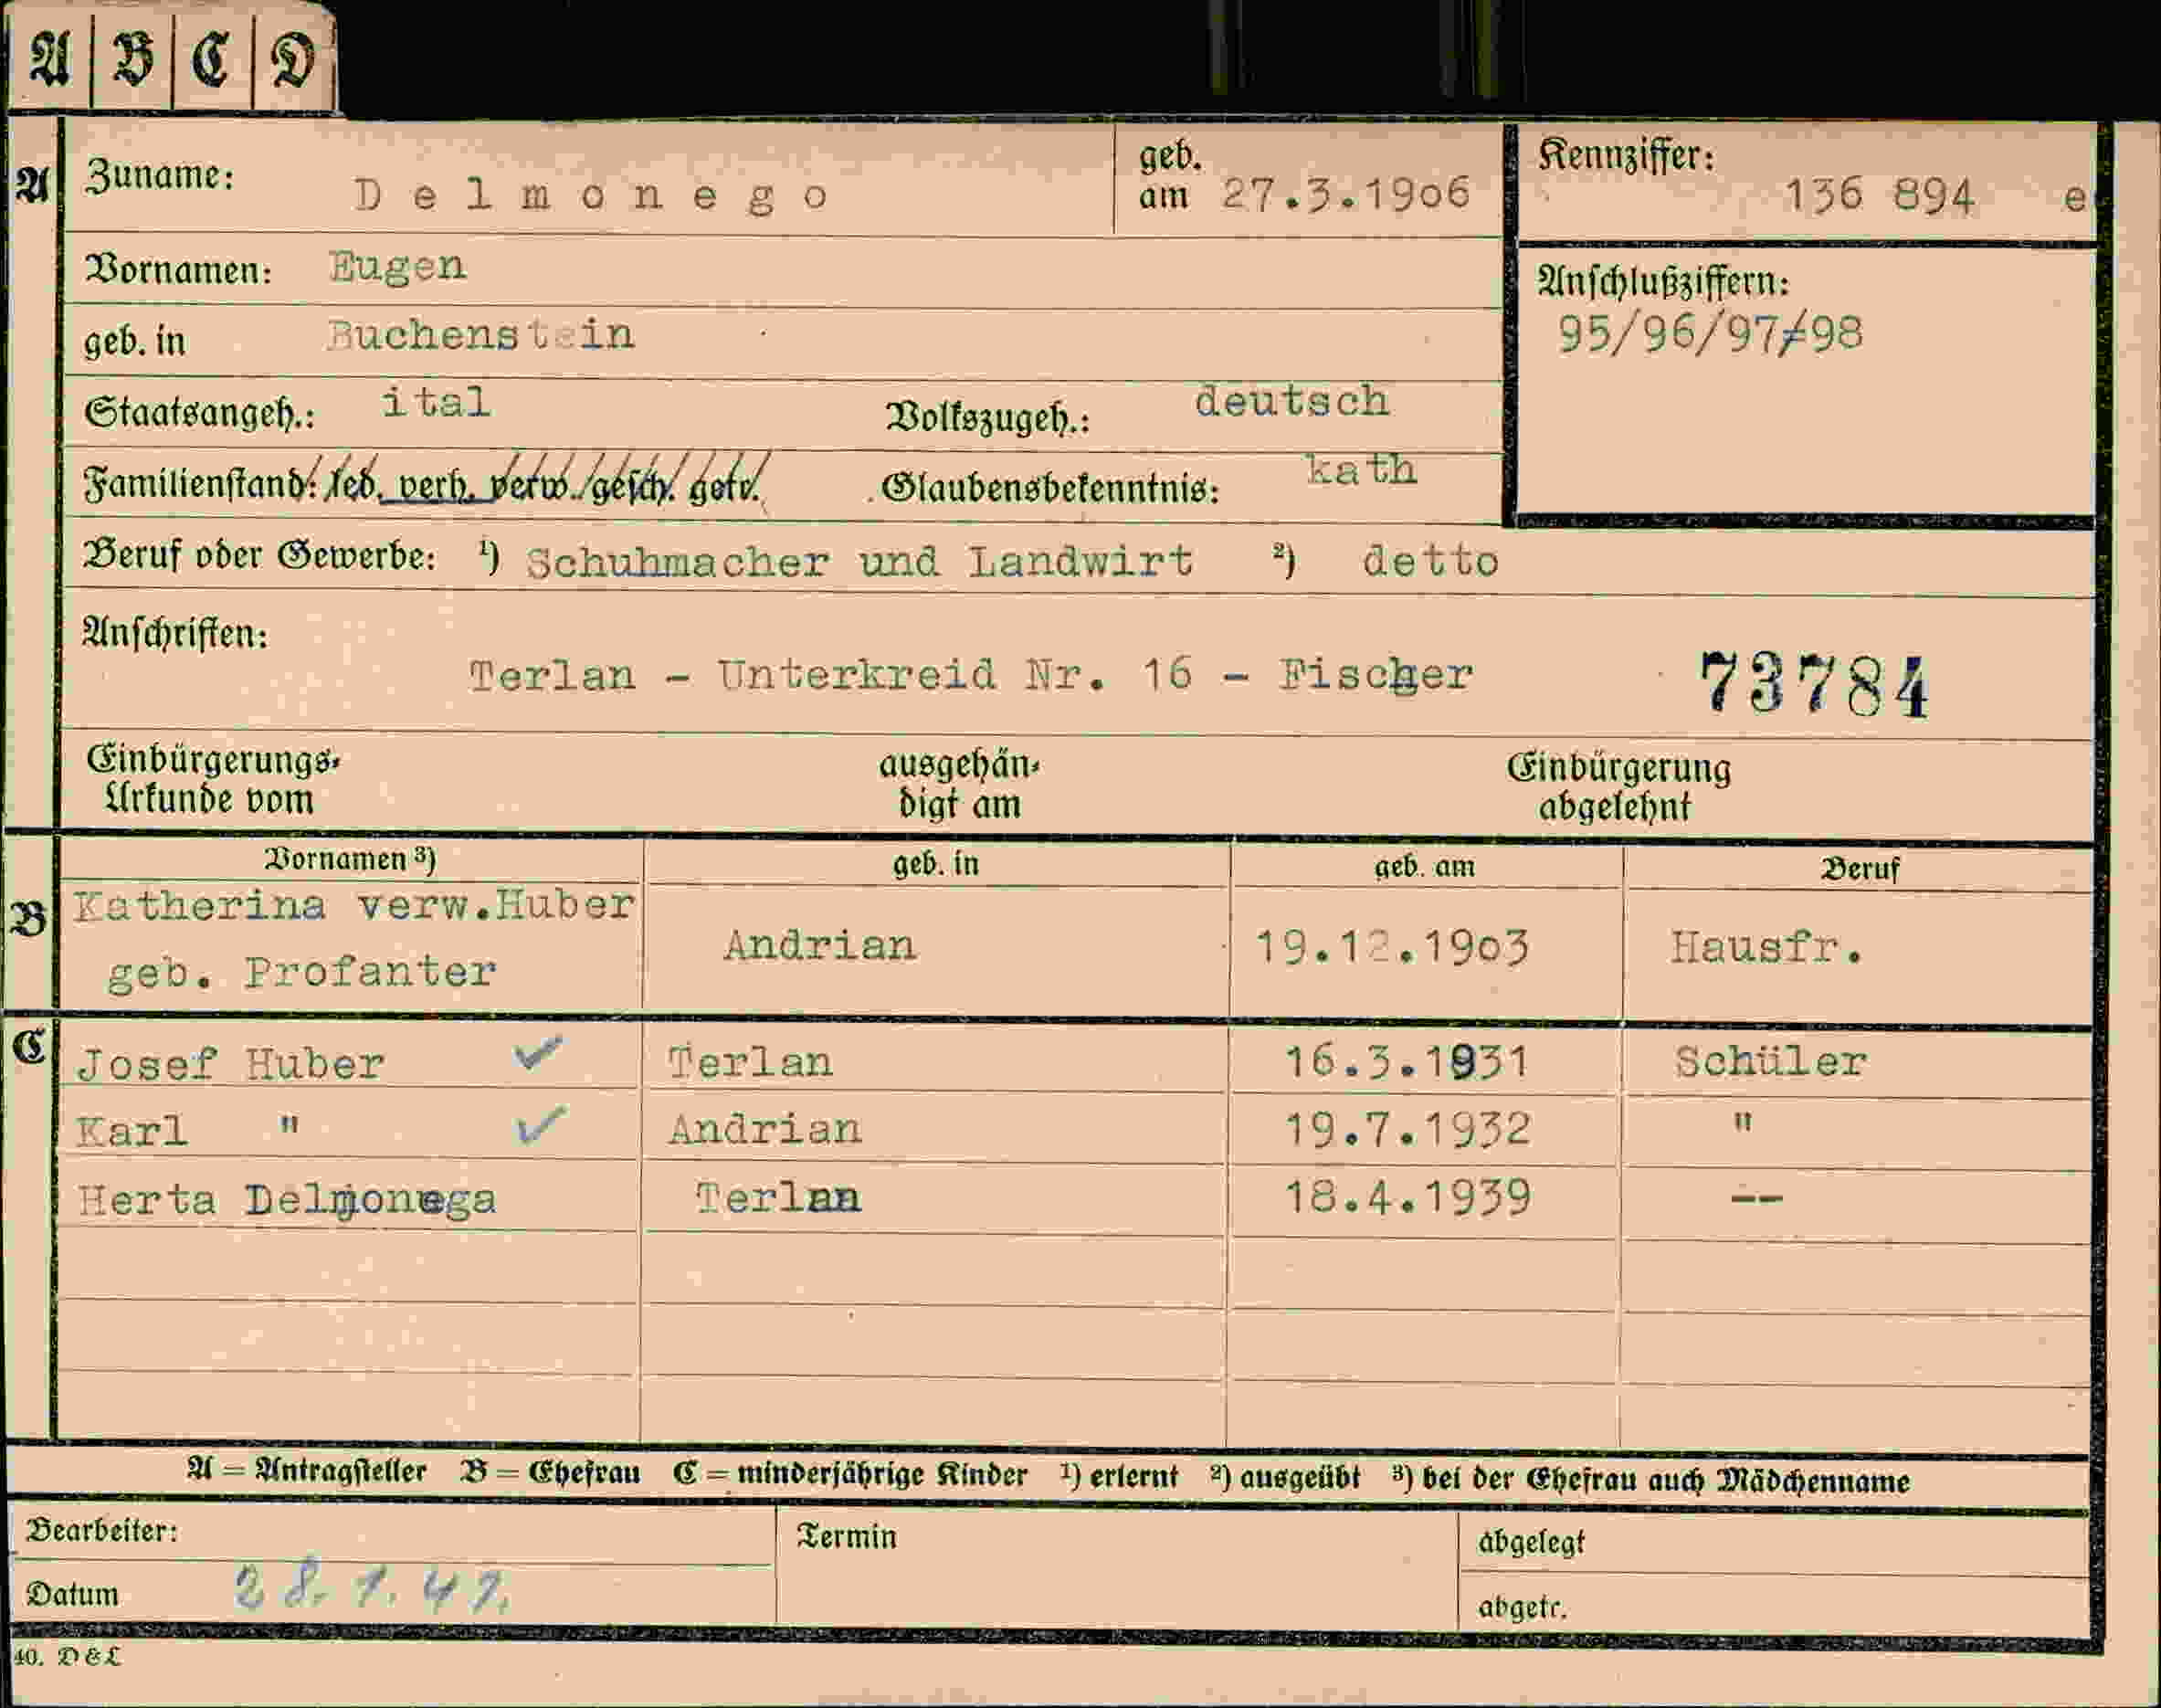 A B C D
A Zuname: Delmonego geb. am 27.3.1906 Kennziffer: 136 894 e
Vornamen: Eugen
geb. in Buchenstein
Anschlußziffern:
95/96/97/98
Staatsangeh.: ital Volkszugeh.: deutsch
Familienstand: led. verh. verw. gesch. getr. Glaubensbekenntnis: kath
Beruf oder Gewerbe: ¹) Schuhmacher und Landwirt ²) detto
Anschriften:
Terlan - Unterkreid Nr. 16 - Fischer 73784
Einbürgerungs-Urkunde vom ausgehändigt am Einbürgerung abgelehnt
Vornamen ³) geb. in geb. am Beruf
B Katherina verw.Huber
geb. Profanter Andrian 19.12.1903 Hausfr.
C Josef Huber ✓ Terlan 16.3.1931 Schüler
Karl " ✓ Andrian 19.7.1932 "
Herta Delmonega Terlan 18.4.1939 --
A = Antragsteller B = Ehefrau C = minderjährige Kinder ¹) erlernt ²) ausgeübt ³) bei der Ehefrau auch Mädchenname
Bearbeiter: Termin abgelegt
Datum 28.1.41. abgetr.
40. D & L